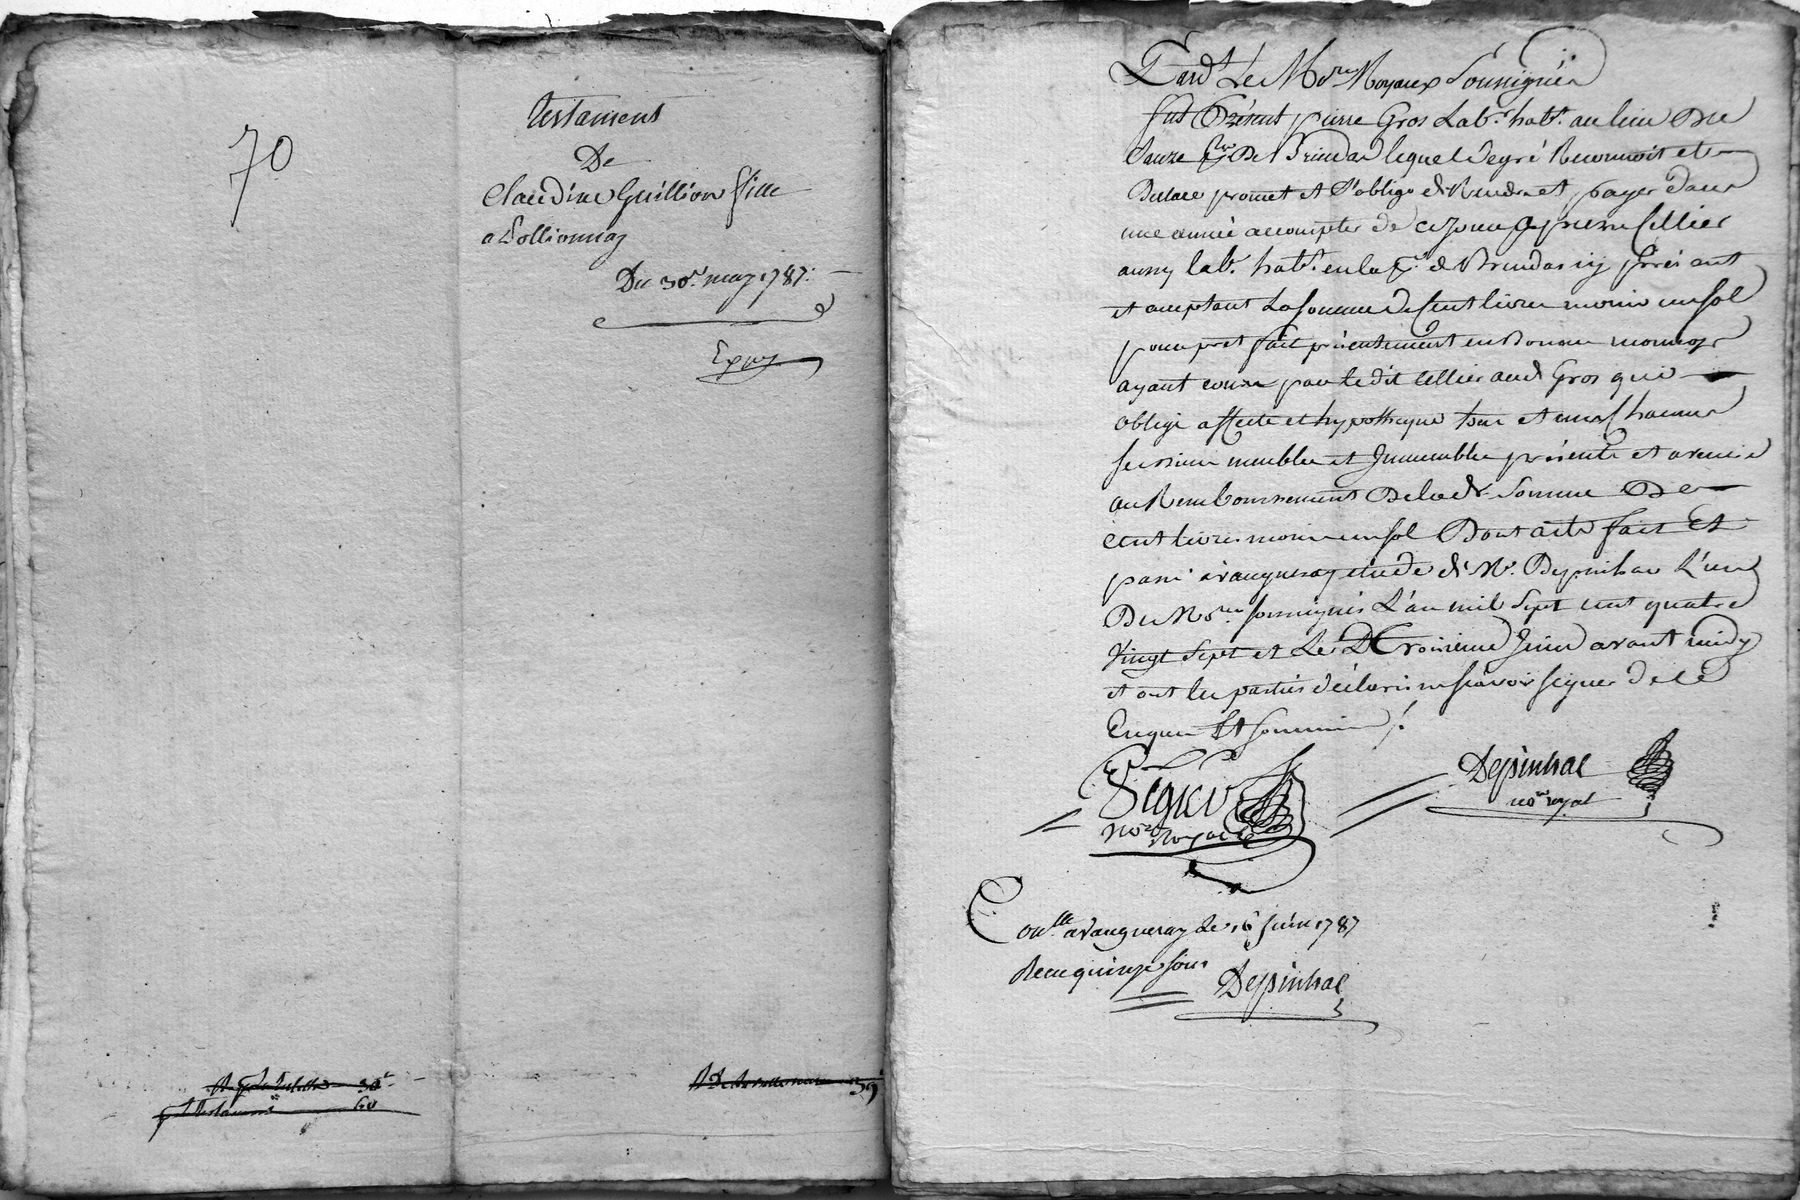 70
Testament
De
Claudine Guillion fille
a Pollionnay
Du 30e. may 1787.
Expéd
60
Pard.t Les No.res Royaux Soussignés
fut Présent pierre Gros Lab.r hab.t au lieu Du
Sauze P.sse De Brindas lequel degré Reconnoit et
Declare promet et S'oblige de Rendre et payer dans
une année acompter de ce jour a pierre Cellier
aussy lab.r hab.t en la P.sse de Brindas icy présent
et acceptant La somme de Cent livres moins un sol
pour prêt fait présentement en Bonne monnoye
ayant cours par ledit Cellier aud. Gros qui
oblige affecte et hypotheque tous et uns chacuns
ses biens meubles et Immeubles présents et avenir
au Remboursement De lad.e Somme De
Cent livres moins un sol Dont acte fait et
passé à vaugneray etude de M.e Depinhac L'un
Des No.res soussignés L'an mil Sept cent quatre
Vingt Sept et Le Troisieme Juin avant midy
et ont les parties déclaré ne sçavoir signer de ce
Enquis Et sommés /.
no.re Royal
Depinhac
no.re royal
Con.lle à vaugneray le 16 juin 1787
Reçu quinze sous Depinhac